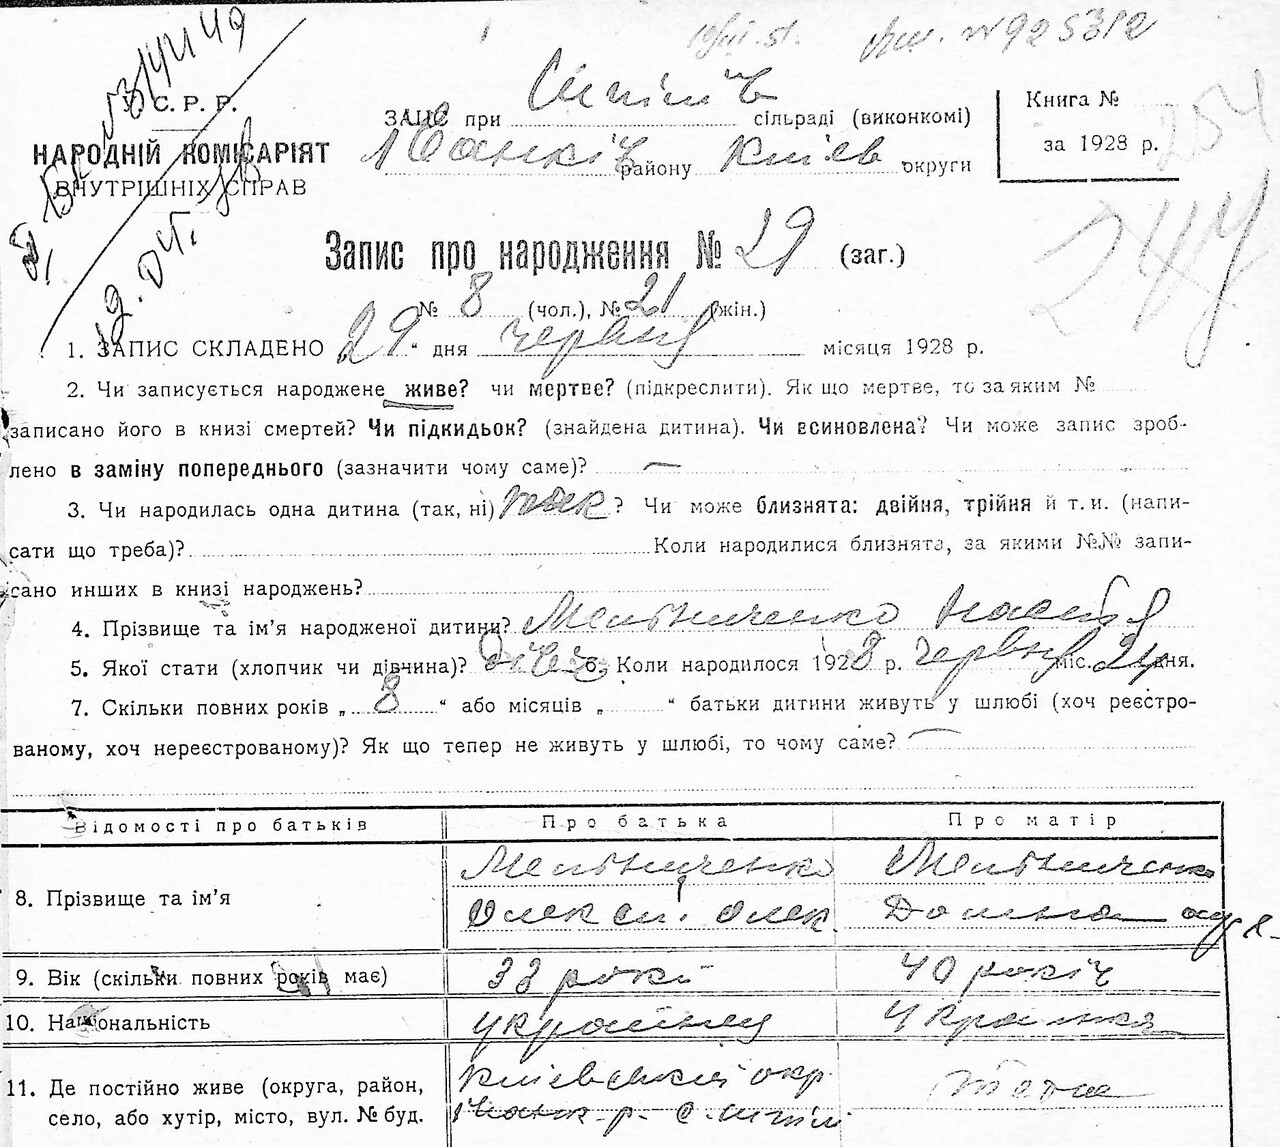 У. С. Р. Р.
НАРОДНІЙ КОМІСАРІЯТ
ВНУТРІШНІХ СПРАВ
ЗАПИС при сільраді (виконкомі)
району Київ округи
Книга №
за 1928 р.
254
244
Запис про народження № 29 (заг.)
№ 8 (чол.), № 21 (жін.)
1. ЗАПИС СКЛАДЕНО „29“ дня червня місяця 1928 р.
2. Чи записується народжене живе? чи мертве? (підкреслити). Як що мертве, то за яким №
записано його в книзі смертей? Чи підкидьок? (знайдена дитина). Чи всиновлена? Чи може запис зроб-
лено в заміну попереднього (зазначити чому саме)? —
3. Чи народилась одна дитина (так, ні) так? Чи може близнята: двійня, трійня й т. и. (напи-
сати що треба)? Коли народилися близнята, за якими №№ запи-
сано инших в книзі народжень?
4. Прізвище та ім'я народженої дитини? Мельниченко Настя
5. Якої стати (хлопчик чи дівчина)? дівч 6. Коли народилося 1928 р. червня міс. 24 дня.
7. Скільки повних років „8“ або місяців „ “ батьки дитини живуть у шлюбі (хоч реєстро-
ваному, хоч нереєстрованому)? Як що тепер не живуть у шлюбі, то чому саме? —
Відомості про батьків Про батька Про матір
8. Прізвище та ім'я Мельниченко Олексій Олек. Мельниченко Домна
9. Вік (скільки повних років має) 33 роки 40 років
10. Національність українец українка
11. Де постійно живе (округа, район,
село, або хутір, місто, вул. № буд. Київський окр. р. с. тота